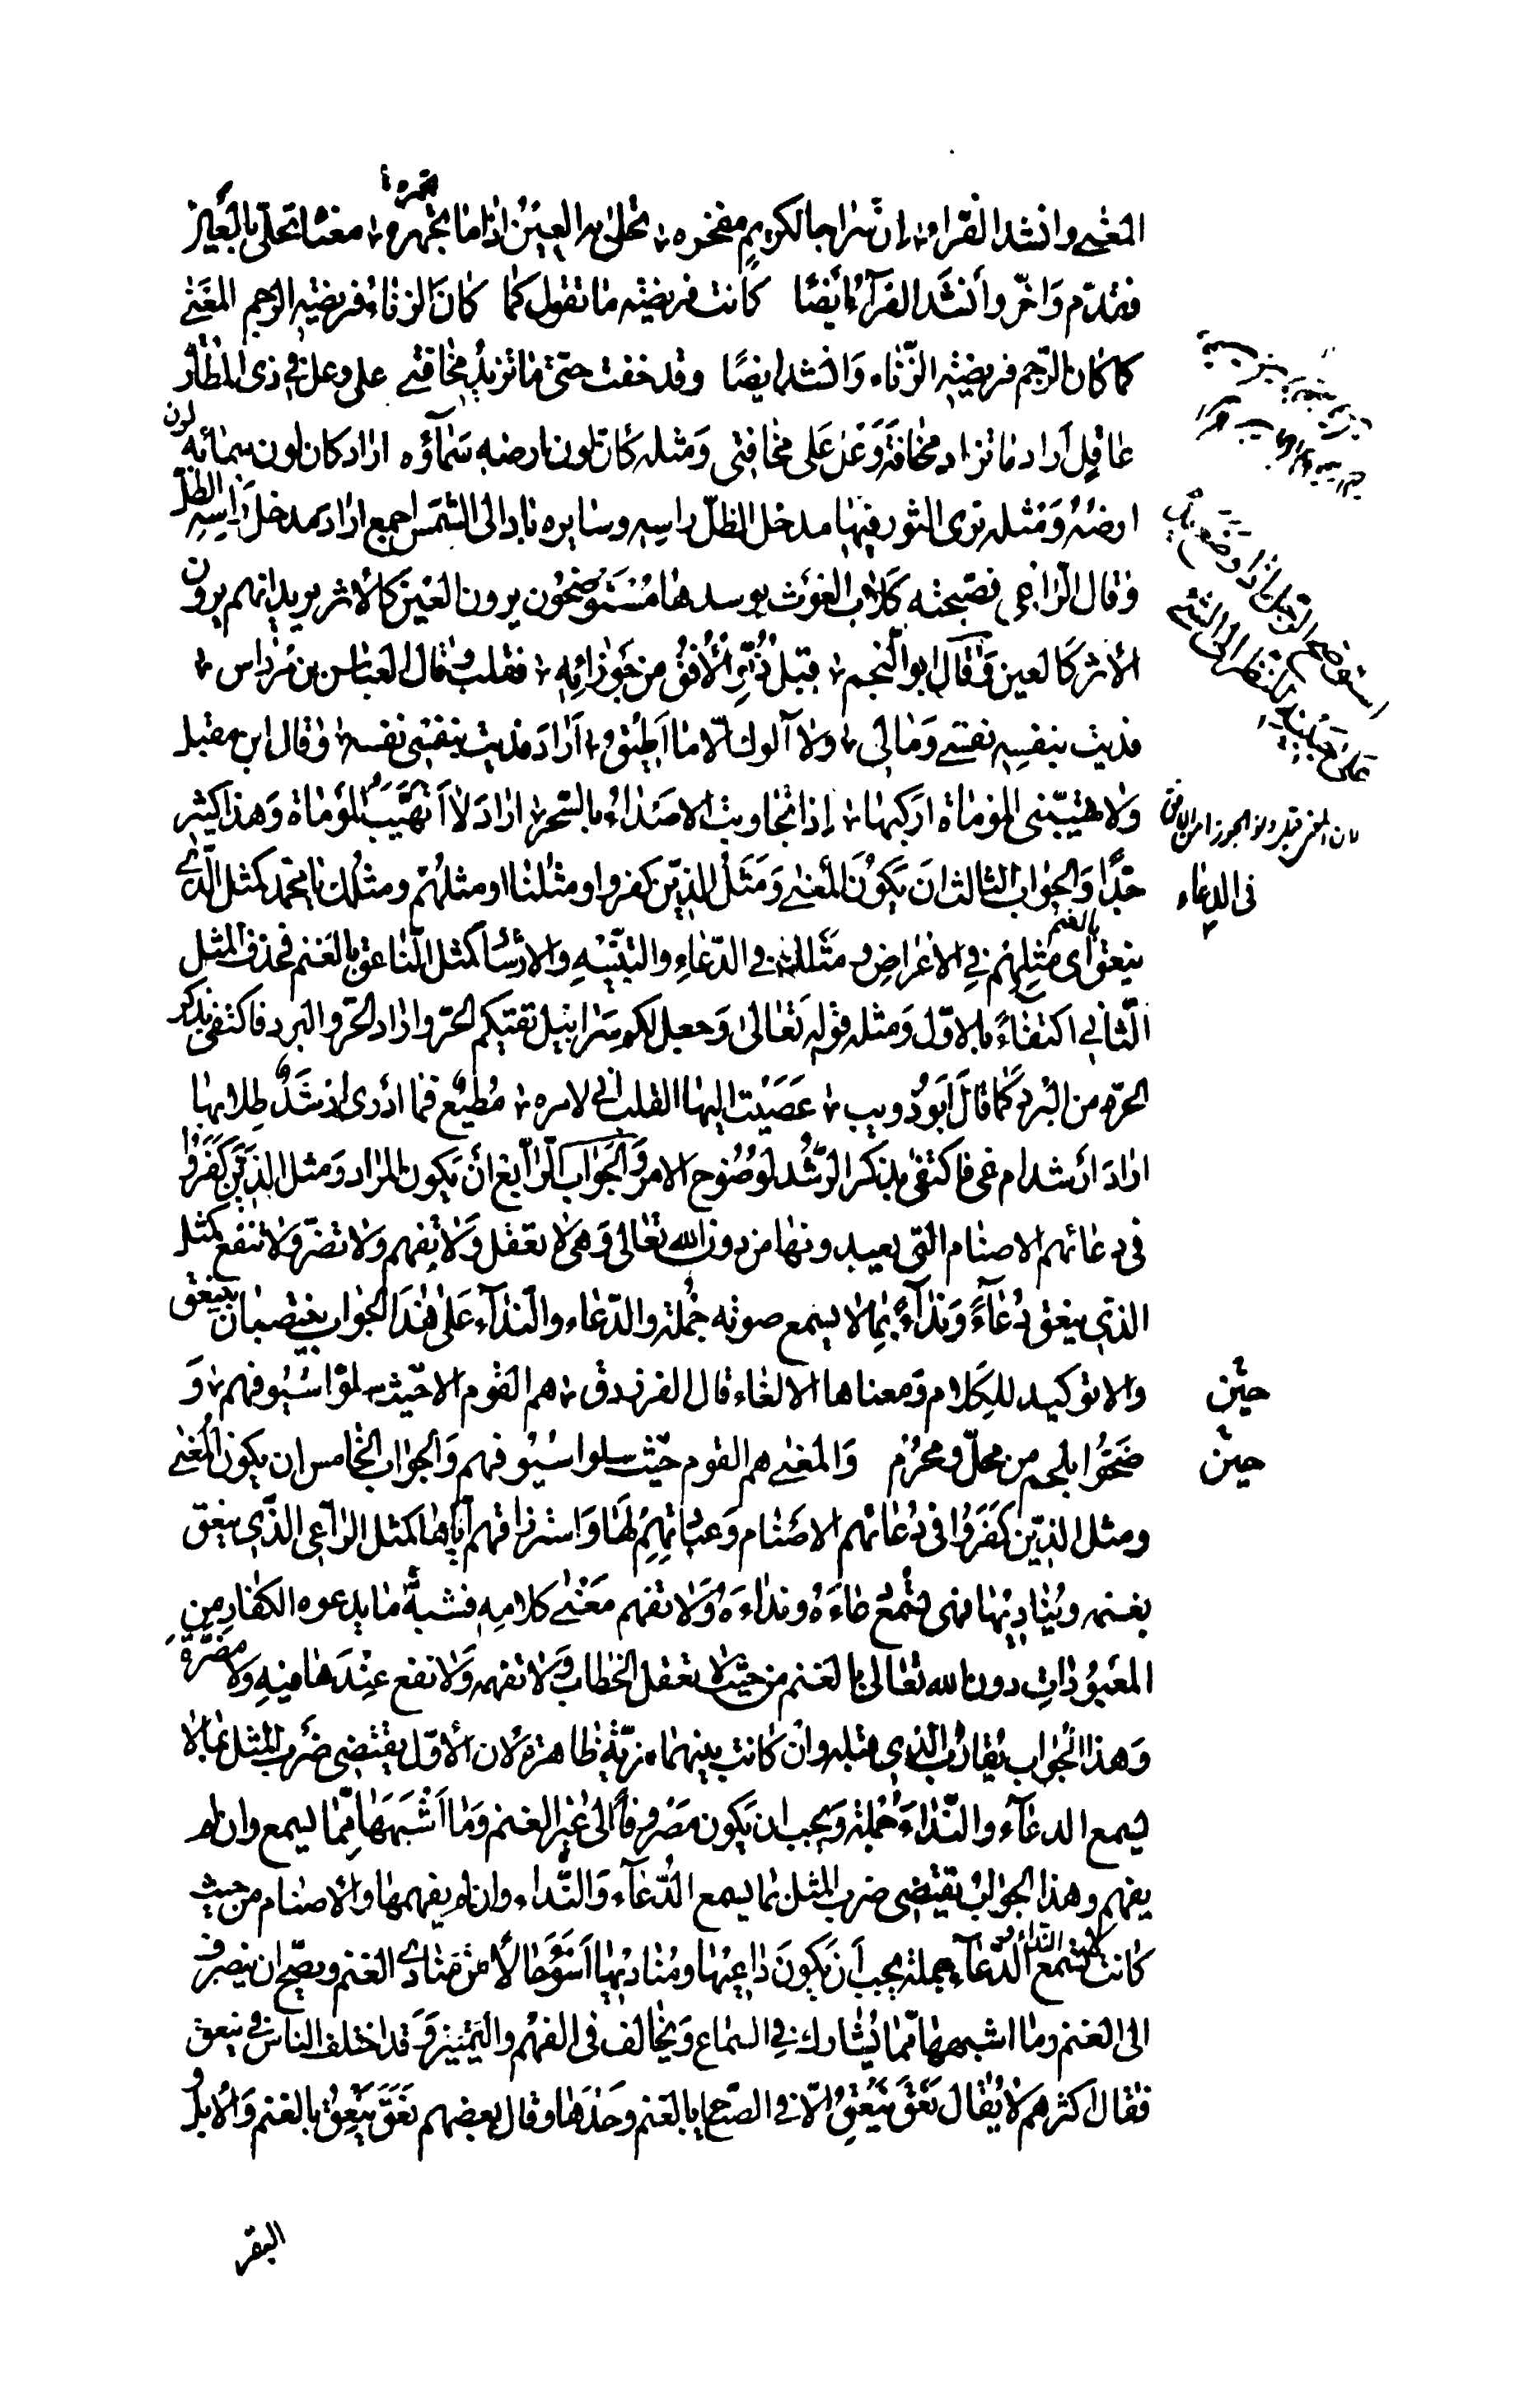 المعنى وانشد الفراء ان سراجا لكريم مفخره تحلى به العين اذا ما تجهره معناه تحلى بالعين
فقدّم وَاخّر وأنشَد الفرّآءُ أيضًا كانت فريضة ما تقول كما كانَ الزناءُ فريضة الرجم المعنى
كما كان الرّجم فريضة الزّناء وَانشد ايضًا وقد خفت حتىّ ما تزيدُ مخافتى على وعل فى ذى المطارة
عاقِلٍ أراد ما تزاد مخافَةُ وَعْل عَلى مخافتى وَمثله كانّ لون ارضه سَمآؤه اراد كان لون سمائه لون
ارضهُ وَمثله ترى الثور فيها مدخل الظلّ راسِه وسايره باد الى الشمس اجمع اراد مدخل راسِهِ الظلّ
وَقال الرّاعى فصبحته كلاب الغوث يوسدها مُسْتَوضِحُون يرون العَيْن كالأثر يريد انهم يرون
الأثر كالعين وَقالَ ابو النّجم قبل دُنُوِّ الأُفُقِ من جَوزائِهِ فقلب وقال العبّاس بن مرداس
فديت بنفسِه نفسى وَمالى ولا آلوك الّا ما اَطِيْقُ اَرادَ فديت بنفسى نفسه وقال ابن مقبل
وَلا تهيّبنى الموماة اركبها إذا تجاوبت الاصدَاءُ بالسّحر ارادَ لا اَتهَيَّبُ الموماة وَهذا كثير
جّدًا وَالجواب الثالث انَ يَكونَ المعنى وَمَثَلُ الذِيْن كفروا ومثلنا او مثلهُمْ ومثلك يا محمد كمثل الّذى
ينعق اى مَثلهم فى الاعراض ومَثَلك فى الدّعاءِ والتنبْيْهِ والارشاد كمثل النّاعق بالغنم فحذف المثل
الثّانى اكتفاءً بالاوّل وَمثله قوله تَعَالىٰ وَجعل لكم سَرابيل تقيكم الحرّ واراد الحرّ والبرد فاكتفى بذكر
الحرّ من البْردِ كما قالَ اَبوذُويب عَصَيْت اليها القلب انّى لامره مُطيْعٌ فما ادْرى ارُشْدٌ طِلابُها
ارادَ اَرُشد ام غى فاكتفى بذكر الرّشُد لوضُوح الامر وَالجَواب الرّابع انْ يَكون المراد وَمثل الذِيْنَ كَفَرُوا
فى دعائهم الاصنام التى يعبدونها من دون الله تعَالى وَهى لا تعقل وَلا تفهم ولا تضرّ وَلا تنفع كمثل
الذى ينعق دُعَآءً وَنداآءً بما لا يسمع صوته جُملة والدّعاء والنداآء عَلى هٰذا الجواب ينتصبان بينعق
والا توكيد للكلام وَمعناها الالغاء قال الفرزدق هم القوم الا حيْث سلوّا سُيُوفهم وَ
ضَحَّوْا بلحم من محلّ ومحرْم وَالمعنى هم القوم حيْث سلوا سُيُوفهم وَالجواب الخامس ان يكون المعنى
ومثل الذيّن كَفَرُوا فى دُعَائهم الاصَنام وَعبَادتهِمِ لها وَاسترزاقهم ايّاها كمثل الرّاعى الذى ينعق
بغنمه ويُنادِيْها فهى تسْمع دعَاءَهُ ونداءَهُ وَلا تفهم مَعْنى كلامِهِ فشبه ما يدعوه الكفار مِن
المعْبُوداتِ دون الله تعَالى بالغنم من حيْث لا تعقل الخطاب وَلا تفهمه وَلا نفع عِنْدَها فيهِ وَلا مضرّة
وَهذا الْجواب يُقارب الّذى قبله وان كانت بينهما مزيّة ظاهرة لان الأوّل يقتضى ضَرْب المثل بما لا
يسمع الدعَآء والنّداءَ جُملة وَيجب ان يَكون مَصْروفًا الىٰ غير الغنم وَما اَشْبَهَهَا مِمّا يسمع وان لم
يفهم وهذا الجوابُ يقتضى ضرب المثل بما يسمع الدُّعَآء وَالنّداء وان لم يفهمها والأصنام من حيث
كانت لا تسْمع النداء والدّعَآء جملة يجب اَن يَكونَ دَاعِيْها ومُناديْها اَسْوَءَ حَالًا مْن مُنادى الغنم ويصّح ان يصرف
الى الغنم وما اشبهها ممّا يُشارك فى السماع وَيخالف فى الفهم والتميْيز وَقد اختلف الناس فى ينعق
فقال اكثرهم لا يُقال نَعَقَ يَنْعِقُ الّا فى الصّياح بالغنم وَحْدَها وقال بعضهم نعَقَ يَنْعِقُ بالغنم وَالابل
فى الدعاء
بالغنم
حين
حين
البقر